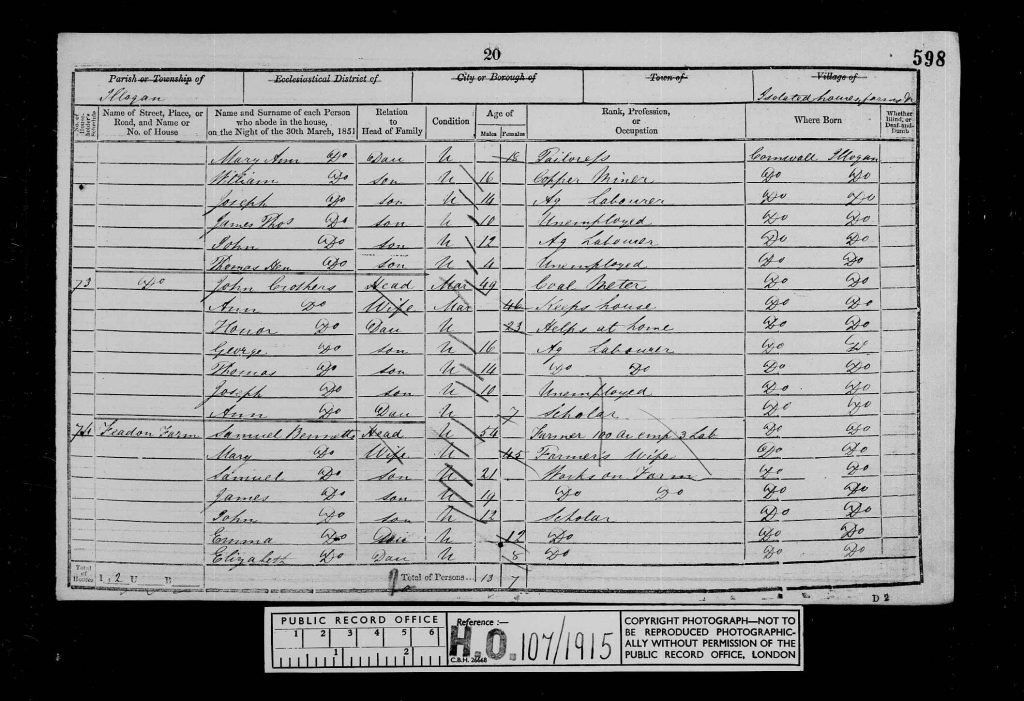 20
598
Parish or Township of Ecclesiastical District of City or Borough of Town of Village of
Illogan Isolated houses, farms &c
No. of House-holder's Schedule Name of Street, Place, or Road, and Name or No. of House Name and Surname of each Person who abode in the house, on the Night of the 30th March, 1851 Relation to Head of Family Condition Age of Males Females Rank, Profession, or Occupation Where Born Whether Blind, or Deaf-and-Dumb
Mary Ann Do Dau U 18 Tailoress Cornwall Illogan
William Do son U 16 Copper Miner Do Do
Joseph Do son U 14 Ag Labourer Do Do
James Thos Do son U 10 Unemployed Do Do
John Do son U 12 Ag Labourer Do Do
Thomas Hen Do son U 4 Unemployed Do Do
73 Do John Crothers Head Mar 49 Coal Meter Do Do
Ann Do Wife Mar 46 Keeps house Do Do
Honor Do Dau U 23 Helps at home Do Do
George Do son U 16 Ag Labourer Do Do
Thomas Do son U 14 Do Do Do Do
Joseph Do son U 10 Unemployed Do Do
Ann Do Dau U 7 Scholar Do Do
74 Feadon Farm Samuel Bennetts Head U 54 Farmer 100 Ac emp 3 Lab Do Do
Mary Do Wife U 45 Farmer's Wife Do Do
Samuel Do son U 21 Works on Farm Do Do
James Do son U 19 Do Do Do Do
John Do son U 12 Scholar Do Do
Emma Do Dau U 12 Do Do Do
Elizabeth Do Dau U 8 Do Do Do
Total of Houses I 2 U B Total of Persons... 13 7
D 2
PUBLIC RECORD OFFICE
1 2 3 4 5 6
1 2
Reference :—
H.O. 107/1915
C.B.H. 26668
COPYRIGHT PHOTOGRAPH—NOT TO
BE REPRODUCED PHOTOGRAPHIC-
ALLY WITHOUT PERMISSION OF THE
PUBLIC RECORD OFFICE, LONDON